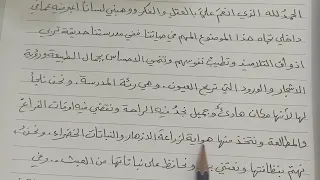 الحمد لله الذي أنعم علي بالعقل والفكر ووهبني لسانا أعبر به عما في
داخلي تجاه هذا الموضوع المهم في حياتنا ففي مدرستنا حديقة تربي
أذواق التلاميذ وتطبع نفوسهم وتنمي الاحساس بجمال الطبيعة ورؤية
الأشجار والورود التي تريح العيون. وهي رئة المدرسة. ونحن نلجأ
لها لأنها مكان هادئ وجميل نجد فيه الراحة ونقضي فيه أوقات الفراغ
والمطالعة ونتخذ منها هواية لزراعة الازهار والنباتات الخضراء. ونحن
نهتم بنظافتها ونعتني بها ونحافظ على نباتاتها من العبث.. وفي